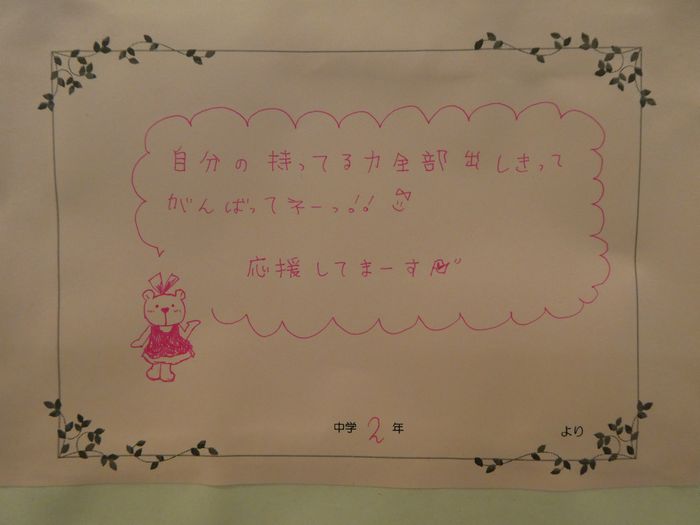 自分の持ってる力全部出しきって
がんばってネーっ!!
応援してまーす
中学2年
より